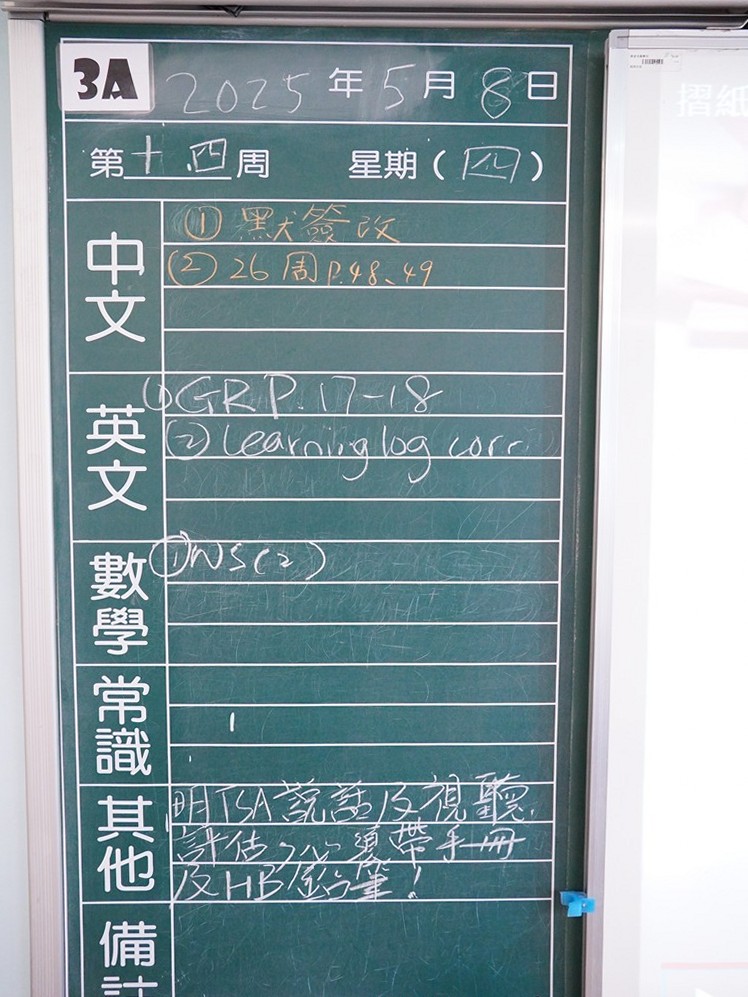 3A 2025年5月8日
第十四周 星期(四)
中文
① 默簽改
② 26周P.48、49
英文
① GRP.17-18
② Learning log corr
數學
① WS(2)
常識
其他
明TSA說話及視聽
評估，必須帶手冊
及HB鉛筆！
備註
摺紙